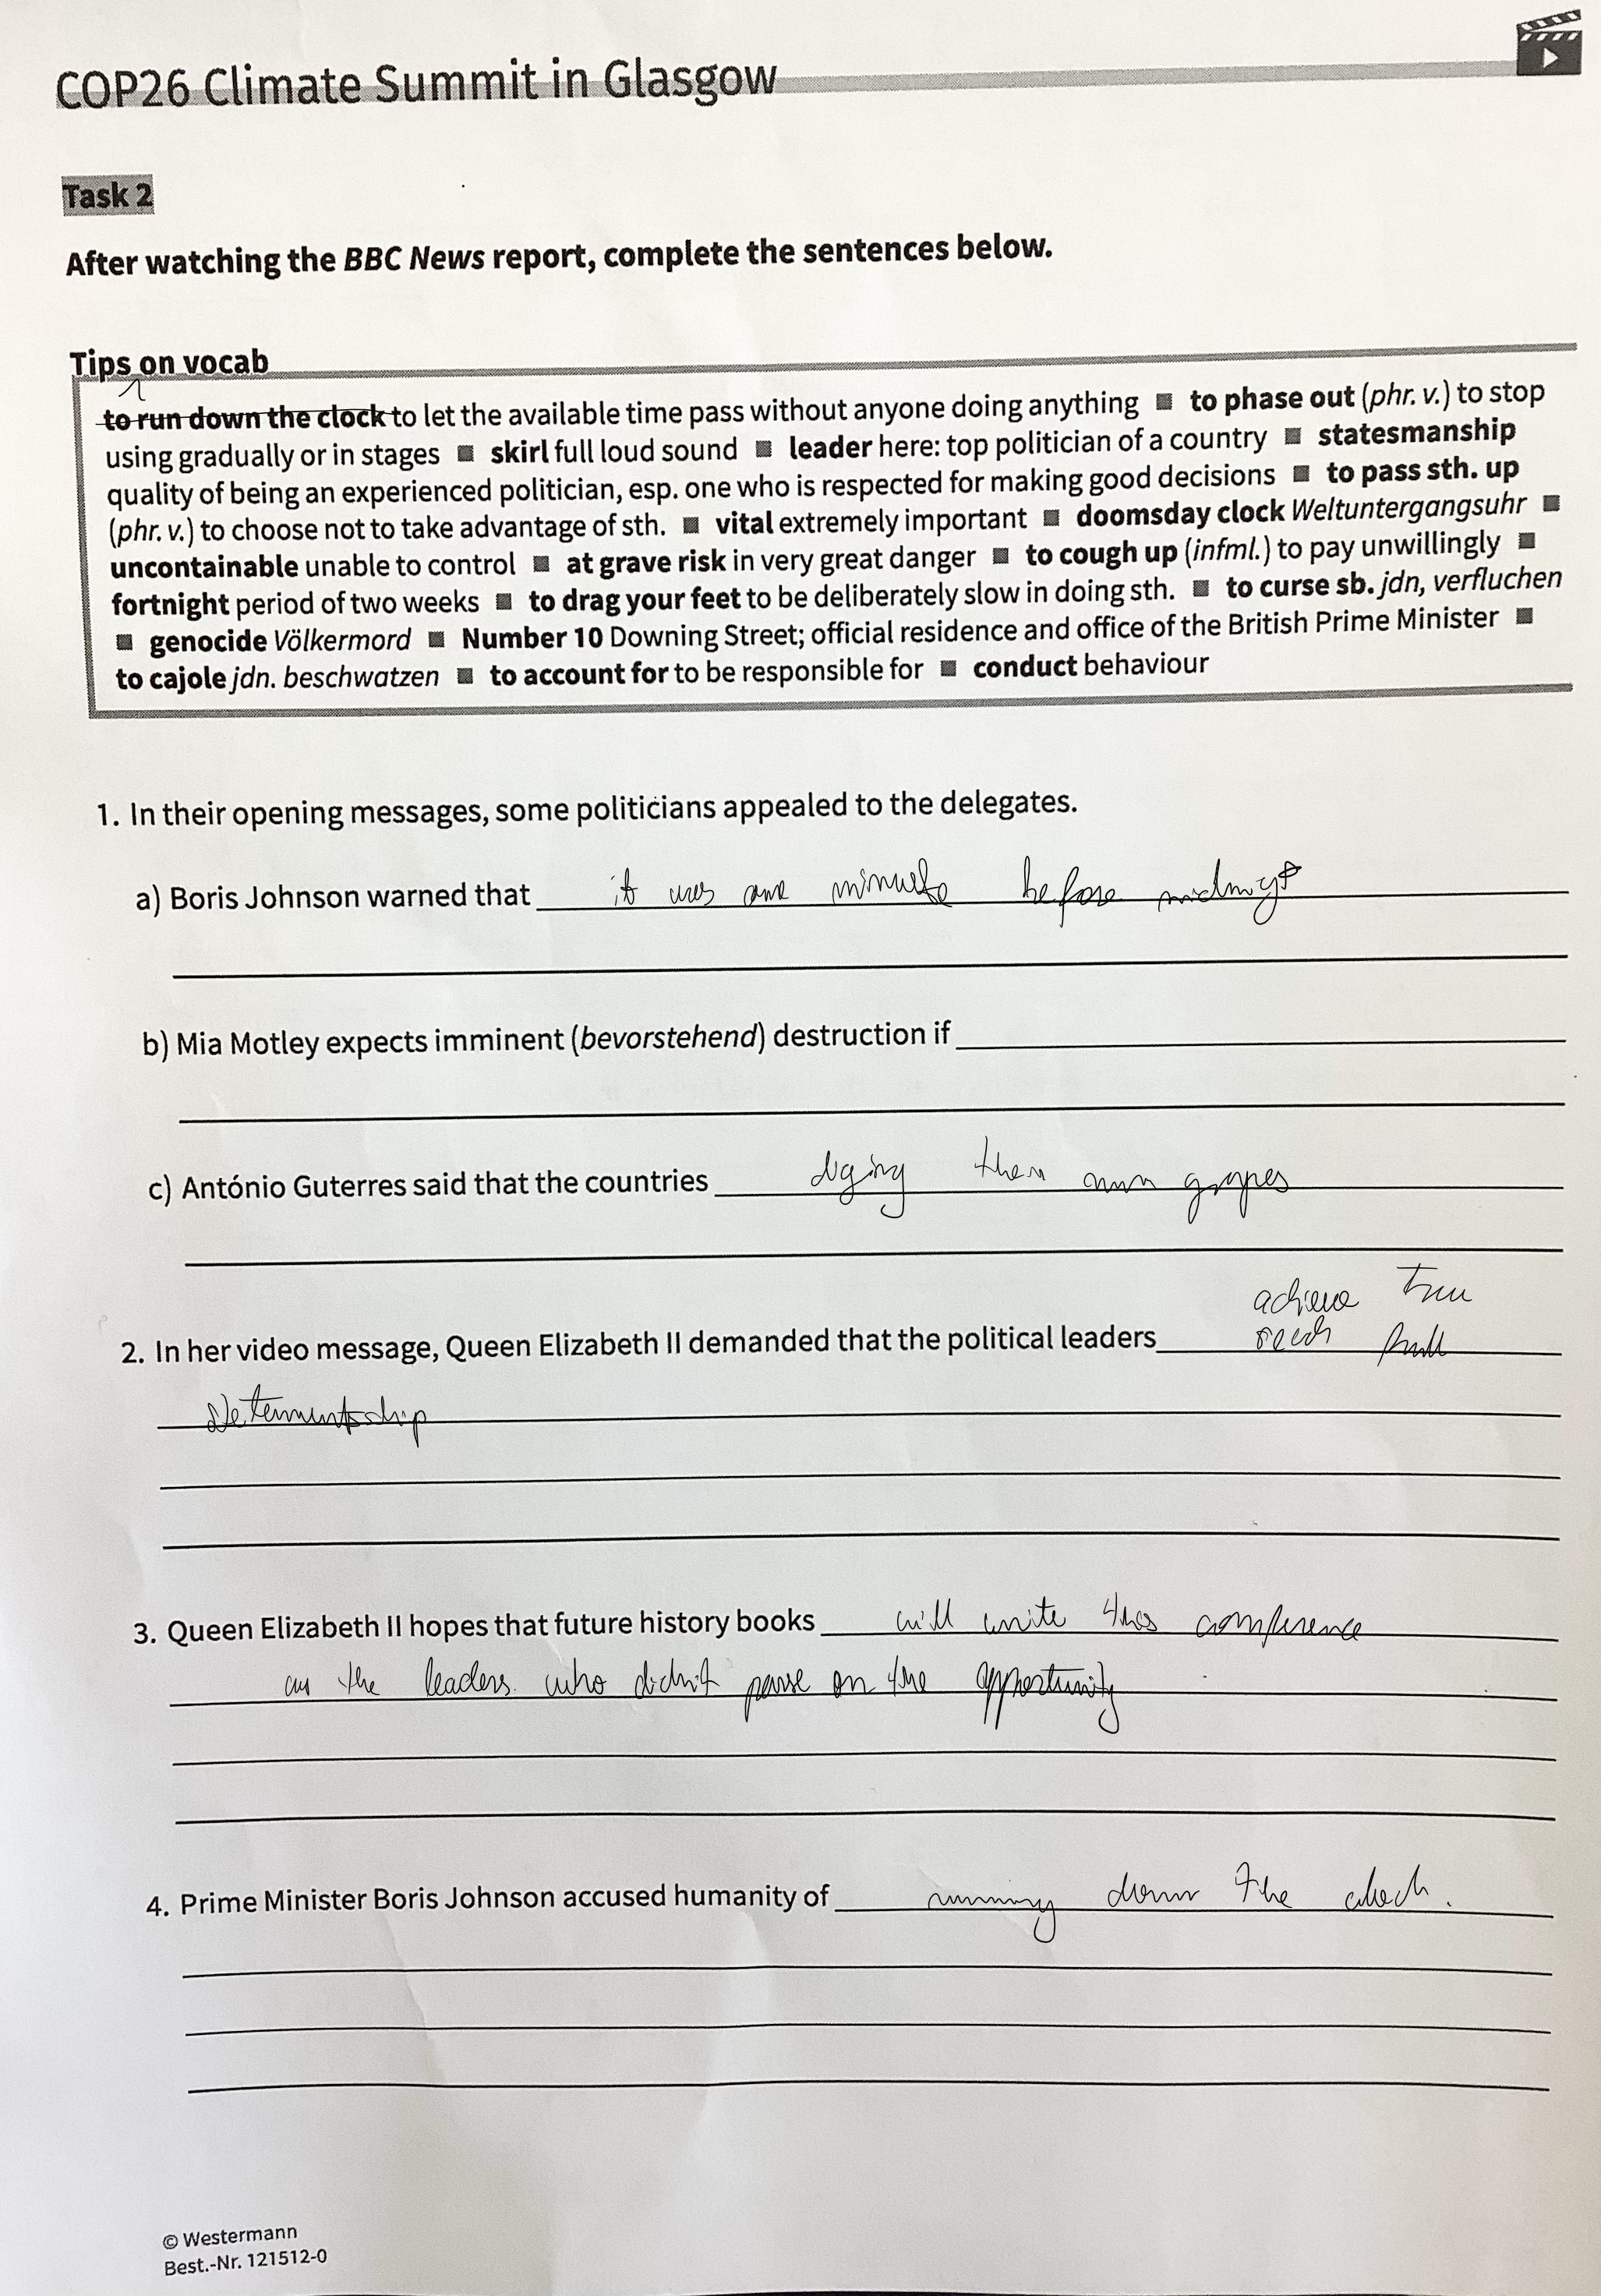 COP26 Climate Summit in Glasgow
Task 2
After watching the BBC News report, complete the sentences below.
Tips on vocab
to run down the clock to let the available time pass without anyone doing anything ■ to phase out (phr. v.) to stop
using gradually or in stages ■ skirl full loud sound ■ leader here: top politician of a country ■ statesmanship
quality of being an experienced politician, esp. one who is respected for making good decisions ■ to pass sth. up
(phr. v.) to choose not to take advantage of sth. ■ vital extremely important ■ doomsday clock Weltuntergangsuhr ■
uncontainable unable to control ■ at grave risk in very great danger ■ to cough up (infml.) to pay unwillingly ■
fortnight period of two weeks ■ to drag your feet to be deliberately slow in doing sth. ■ to curse sb. jdn, verfluchen
■ genocide Völkermord ■ Number 10 Downing Street; official residence and office of the British Prime Minister ■
to cajole jdn. beschwatzen ■ to account for to be responsible for ■ conduct behaviour
1. In their opening messages, some politicians appealed to the delegates.
a) Boris Johnson warned that it was one minute before
b) Mia Motley expects imminent (bevorstehend) destruction if
c) António Guterres said that the countries
achieve true
2. In her video message, Queen Elizabeth II demanded that the political leaders
3. Queen Elizabeth II hopes that future history books will write this conference
as the leaders who didn't on the opportunity
4. Prime Minister Boris Johnson accused humanity of running down the clock.
© Westermann
Best.-Nr. 121512-0